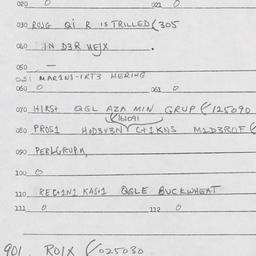 020 0 021 0
030 ROJG QI R IS TRILLED (305
040 IN D3R HEJX .
050 —
051 MAR1N1-IRT3 HERING
060 0 061 0
070 HIRSH QGL AZA MIN GRUP (125090
(161091
080 PROS1 H1D3V3N CH1KNS M2D3R0F (
090 PERLGRUPN,
100 0
110 RECH1N1 KASH1 QGLE BUCKWHEAT
111 0 112 0
901 ROIX (025030